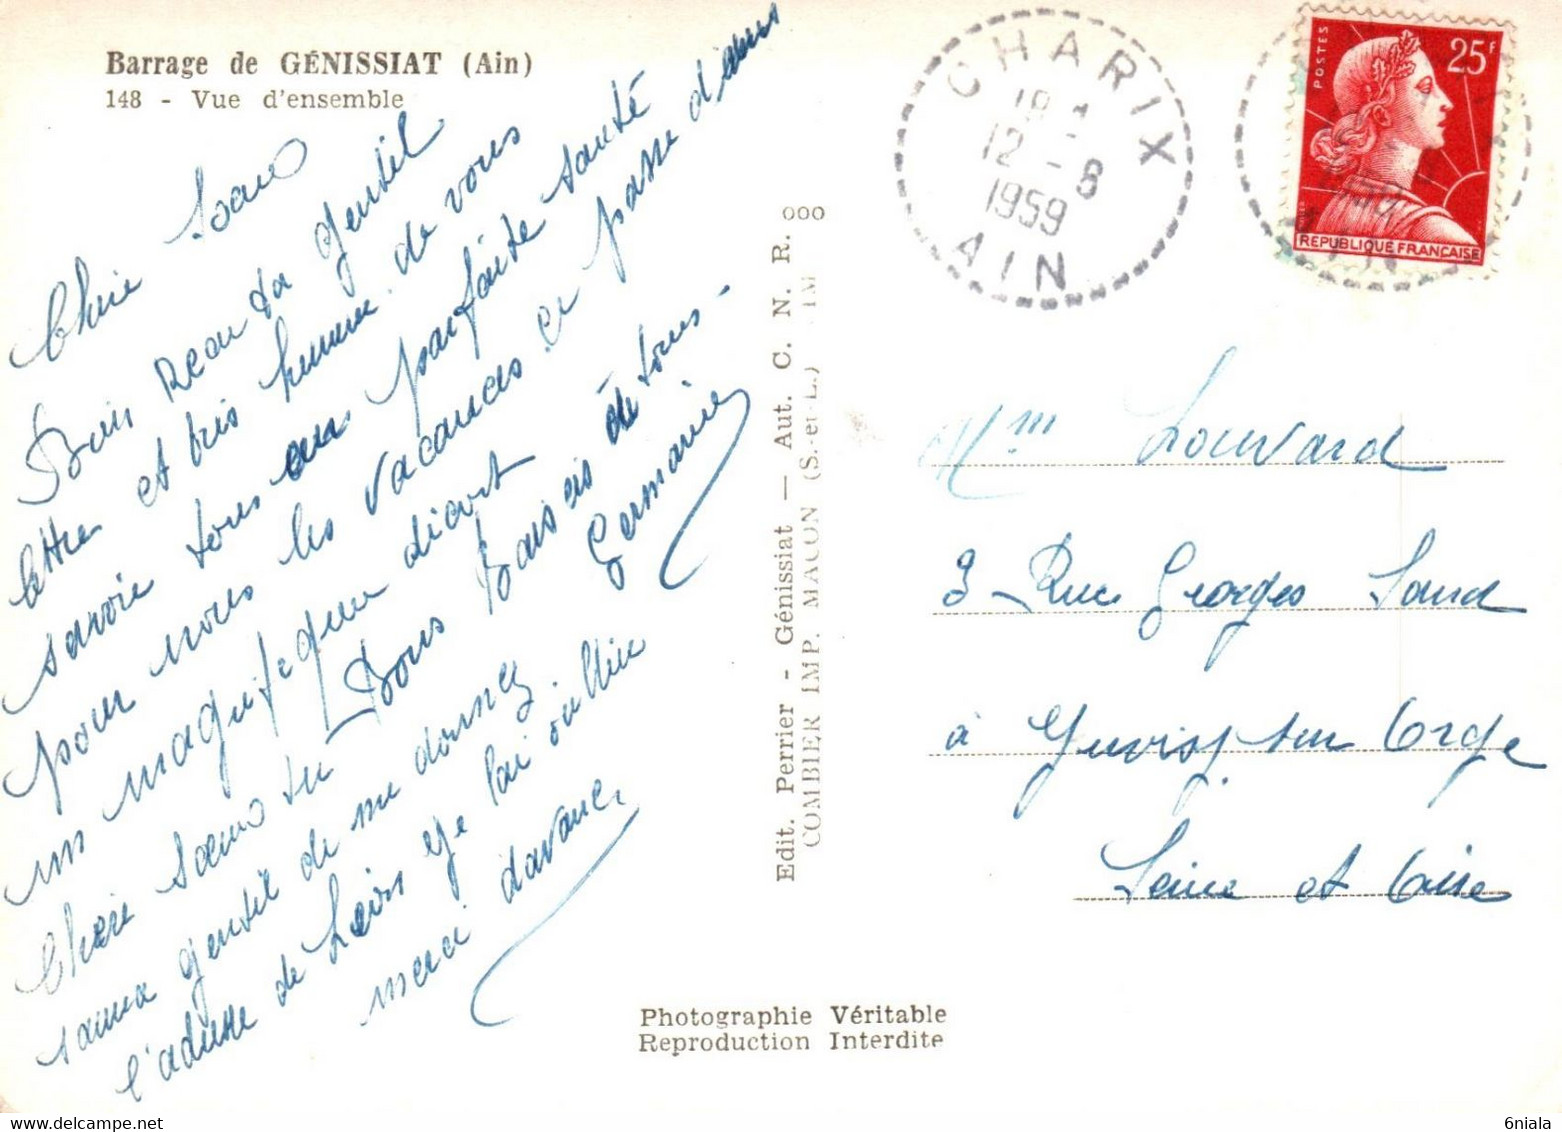 Barrage de GÉNISSIAT (Ain)
148 - Vue d'ensemble
Chère Soeur
Bien reçu ta gentil
lettre et très heureux de vous
savoir tous en parfaite santé
pour nous les vacances ce passe dans
un magnifique
Chère Soeur tu
Bons baisers de tous -
Germaine
sera gentil de me donner
l'adresse de je l'ai oublié
merci d'avance
Edit. Perrier - Génissiat — Aut. C. N. R. 000
COMBIER IMP. MACON (S.-et-L.) IM
Photographie Véritable
Reproduction Interdite
CHARIX
12 - 8
1959
AIN
POSTES
25F
REPUBLIQUE FRANÇAISE
AIN
Mme Louvard
3 Rue Georges Sand
à Juvisy sur Orge
Seine et Oise
6niala